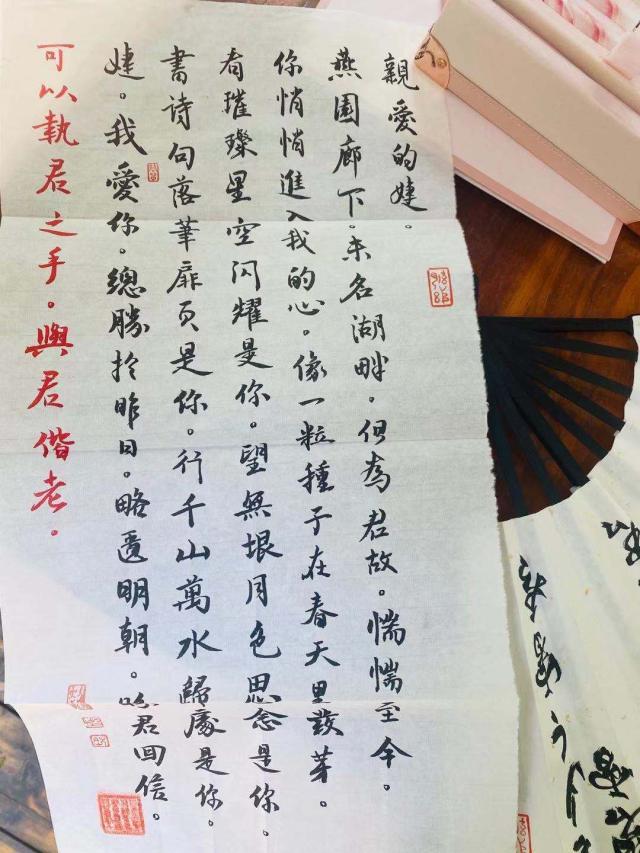 親愛的婕。
燕園廊下。未名湖畔。但為君故。惴惴至今。
你悄悄進入我的心。像一粒種子在春天里發芽。
看璀璨星空閃耀是你。望無垠月色思念是你。
書詩句落筆扉頁是你。行千山萬水歸處是你。
婕。我愛你。總勝於昨日。略匱明朝。盼君回信。
可以執君之手。與君偕老。